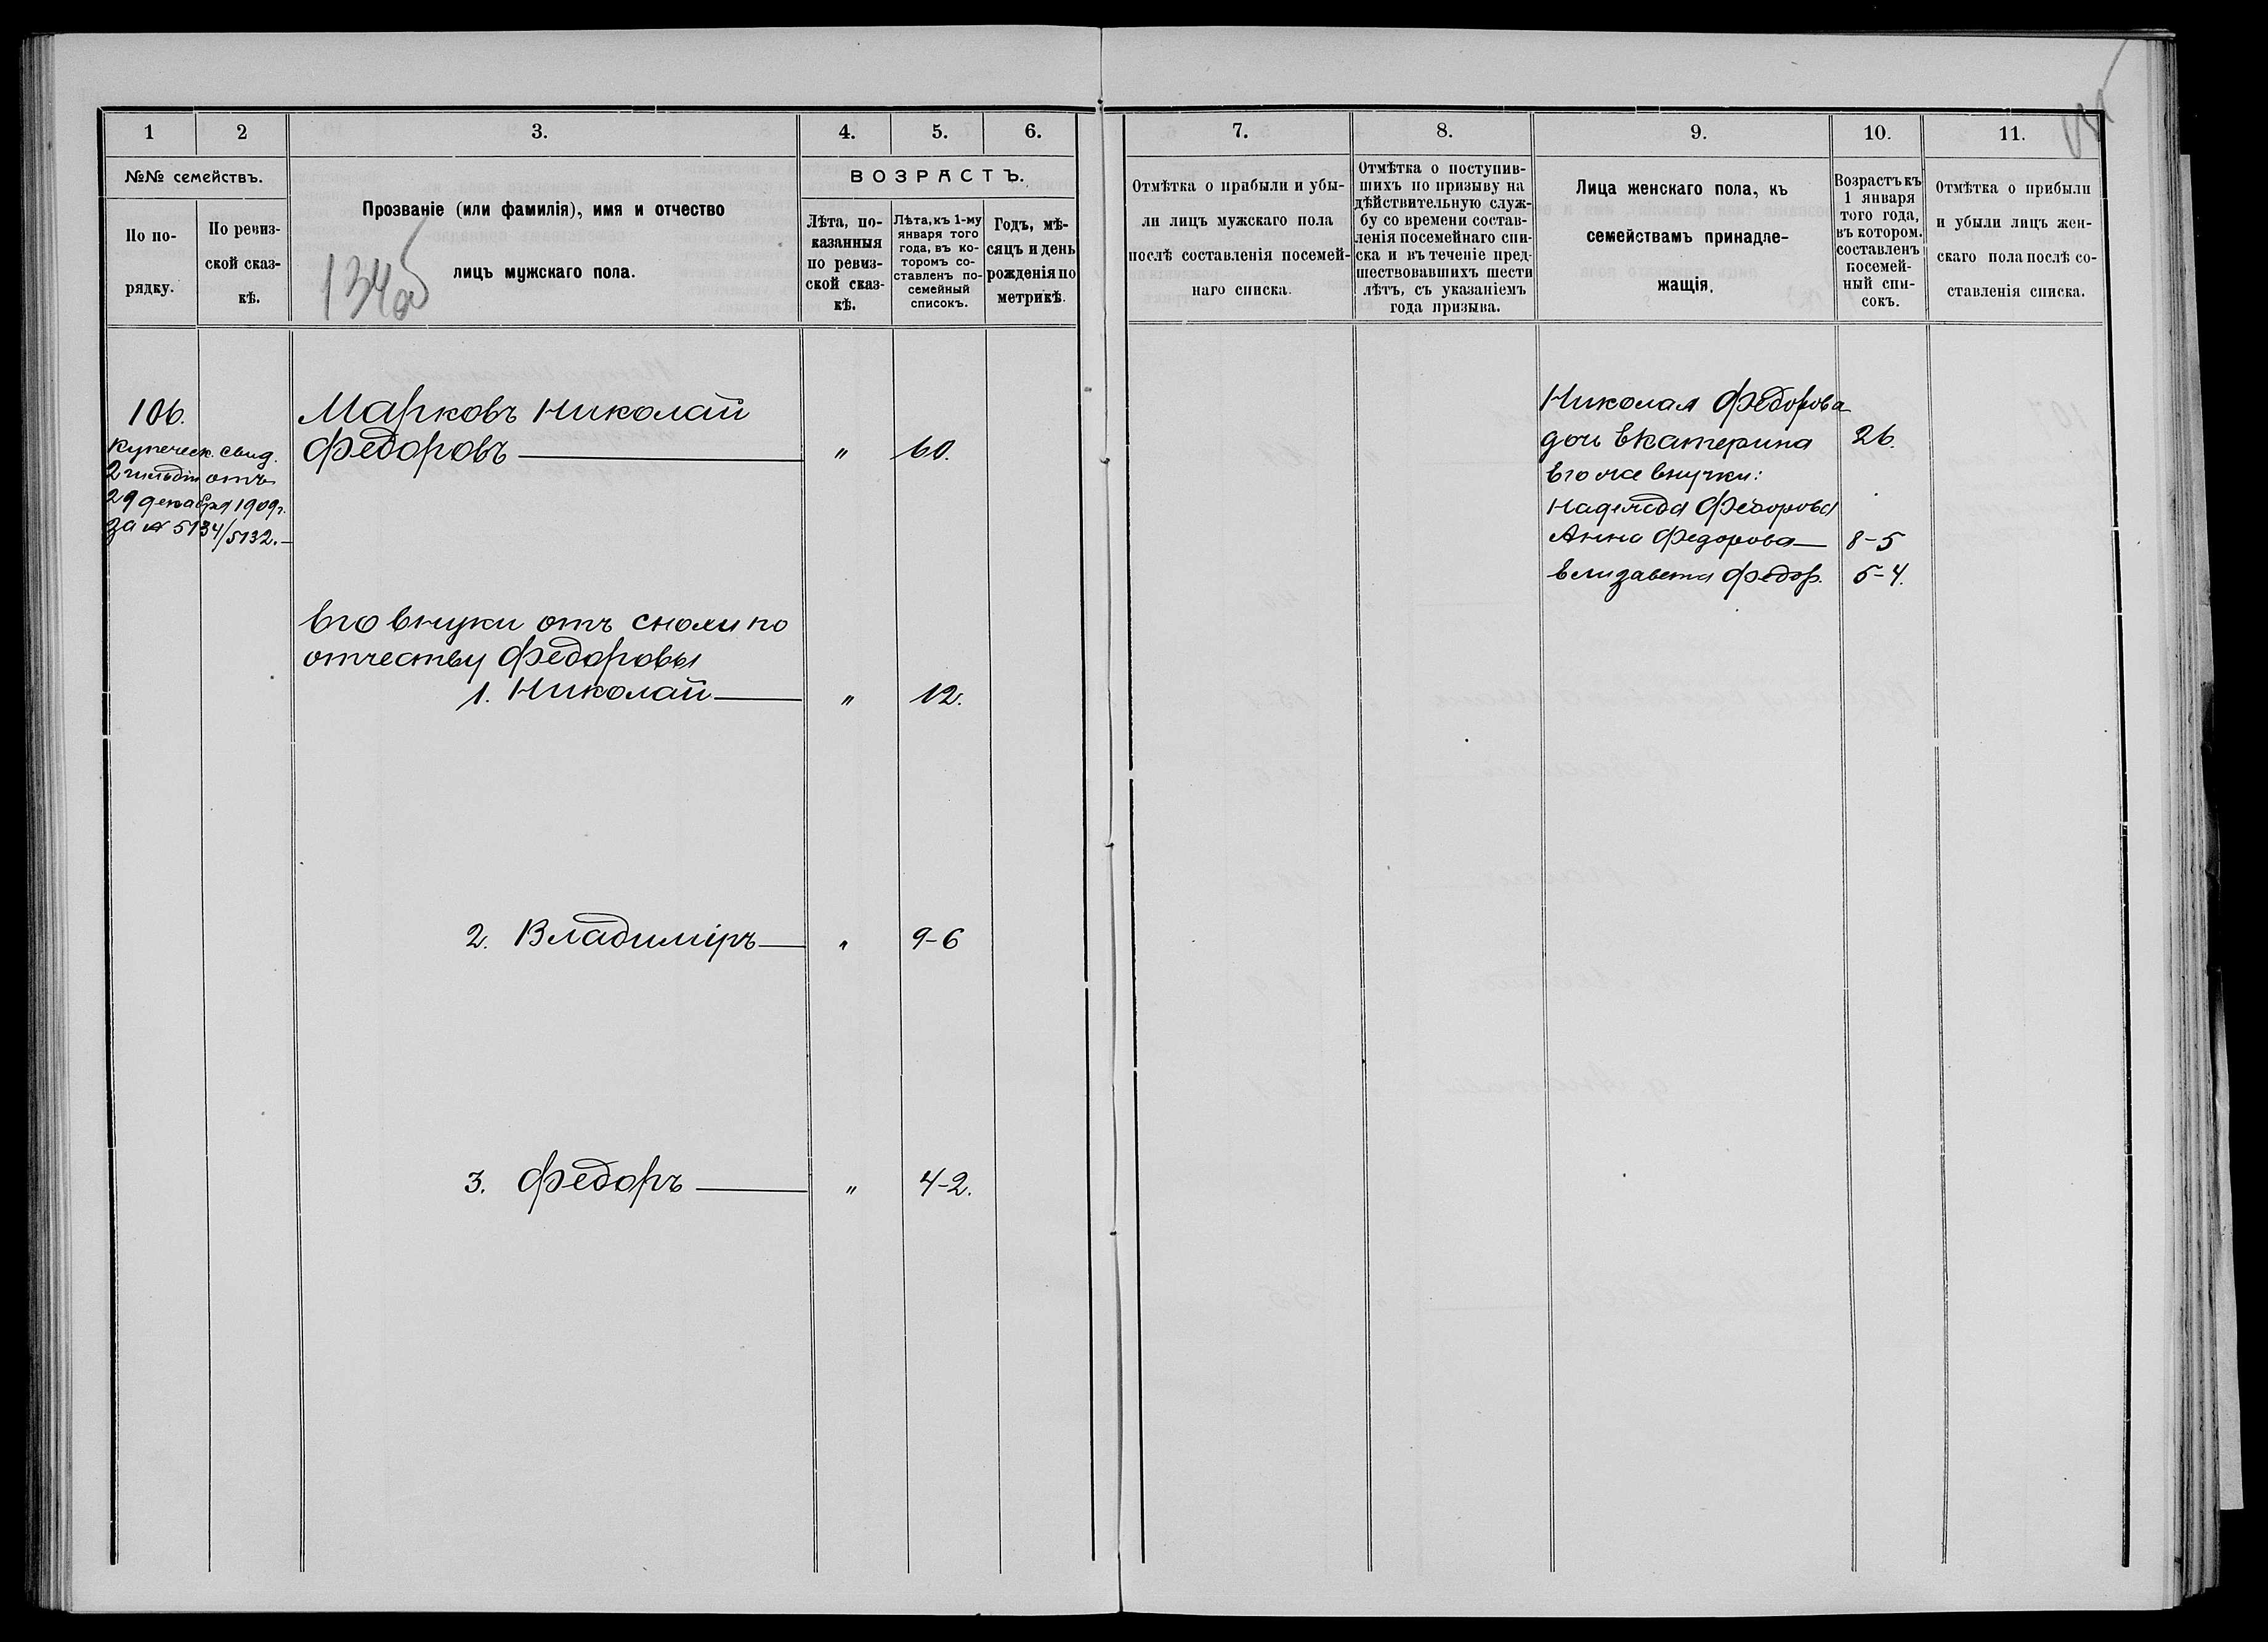 1
2
3.
4.
5.
6.
№№ семействъ.
По по-
рядку.
По ревиз-
ской сказ-
кѣ.
Прозваніе (или фамилія), имя и отчество
лицъ мужскаго пола.
ВОЗРАСТЪ.
Лѣта, по-
казанныя
по ревиз-
ской сказ-
кѣ.
Лѣта, къ 1-му
января того
года, въ ко-
торомъ со-
ставленъ по-
семейный
списокъ.
Годъ, мѣ-
сяцъ и день
рожденія по
метрикѣ.
106.
Купеческ. свид.
2 гильдіи отъ
29 декабря 1909 г.
за № 5134/5132.
Марковъ Николай
Федоровъ " 60.
Его внуки отъ снохи по
отчеству Федоровы
1. Николай " 12.
2. Владиміръ " 9-6
3. Федоръ " 4-2.
7.
8.
9.
10.
11.
Отмѣтка о прибыли и убы-
ли лицъ мужскаго пола
послѣ составленія посемей-
наго списка.
Отмѣтка о поступив-
шихъ по призыву на
дѣйствительную служ-
бу со времени состав-
ленія посемейнаго спи-
ска и въ теченіе пред-
шествовавшихъ шести
лѣтъ, съ указаніемъ
года призыва.
Лица женскаго пола, къ
семействамъ принадле-
жащія.
Возрастъ къ
1 января
того года,
въ котором.
составленъ
посемей-
ный спи-
сокъ.
Отмѣтка о прибыли
и убыли лицъ жен-
скаго пола послѣ со-
ставленія списка.
Николая Федорова
дочь Екатерина 26.
Его же внучки:
Надежда Федорова
Анна Федорова 8-5
Елизавета Федор. 5-4.